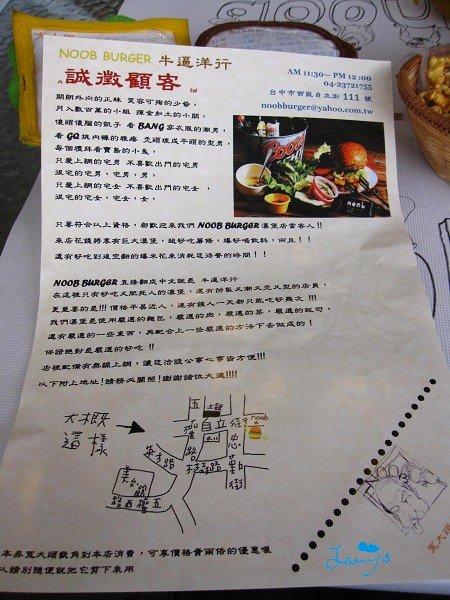 NOOB BURGER 牛逼洋行
誠徵顧客
AM 11:30~ PM 12:00
04-23721755
台中市西區自立街 111 號
noobburger@yahoo.com.tw
開朗外向的正妹 笑容可掬的少爺,
月入數百萬的小姐 揮金如土的小開,
傻頭傻腦的凱子 看 BANG 穿衣服的潮男,
看 GQ 挑內褲的雅痞 禿頭理成平頭的型男,
每個禮拜看寶島的小鬼,
只愛上網的宅男 不喜歡出門的宅男
很宅的宅男, 宅男, 男,
只愛上網的宅女 不喜歡出門的宅女 ,
很宅的宅女, 宅女, 女,
只要符合以上資格, 都歡迎來我們 NOOB BURGER 漢堡店當客人 !!
來店花錢將享有巨大漢堡, 超好吃薯條, 爆好喝飲料, 而且 ! !
還有好吃到後空翻的爆米花來消耗您浩瀚的時間 ! !
NOOB BURGER 直接翻成中文就是 牛逼洋行
在這裡只有好吃又肥死人的漢堡, 還有帥氣又潮又亮又型的店員,
更重要的是!!! 價格平易近人, 還有饑人一天都只能吃好幾次 !!!
我們漢堡是使用嚴選的麵包, 嚴選的肉, 嚴選的菜, 嚴選的起司,
還有嚴選的一些東西, 再配合上一些嚴選的方法下去做成的 !
保證絕對是嚴選的好吃 !!
店裡配備有無線上網, 讓您洽談公事心事皆方便!!!
以下附上地址! 請務必關照! 謝謝諸位大進!!!!
大概
這樣
五權路
土銀
自立街
忠勤街
noob
7-11
英才路
林森路
美術館
五權西路
寬大頭
本券寬大頭截角到本店消費, 可享價格貴兩倍的優惠喔
以請別隨便就把它剪下來用